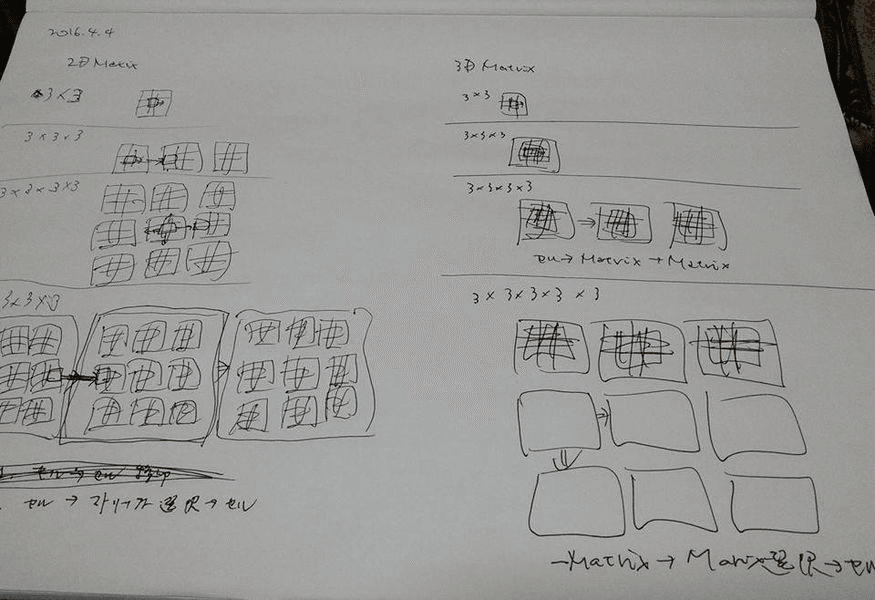 2016.4.4
2D Matrix
3×3
3×3×3
3×3×3×3
3×3×3
セル → マトリックス選択 → セル
3D Matrix
3×3
3×3×3
3×3×3×3
セル→Matrix→Matrix
3×3×3×3×3
→Matrix→Matrix選択→セル